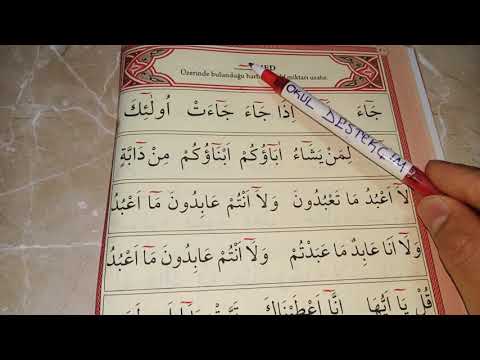 MED
Üzerinde bulunduğu miktarı uzatır.
OKUL DESTEKCİM
جَٓاءَ اِذَا جَٓاءَ جَٓاءَتْ اُولٰٓئِكَ
لِمَنْ يَشَٓاءُ اٰبَٓاؤُكُمْ اَبْنَٓاؤُكُمْ مِنْ دَٓابَّةٍ
لَٓا اَعْبُدُ مَا تَعْبُدُونَ وَلَٓا اَنْتُمْ عَابِدُونَ مَٓا اَعْبُدُ
وَلَٓا اَنَا عَابِدٌ مَا عَبَدْتُمْ وَلَٓا اَنْتُمْ عَابِدُونَ مَٓا اَعْبُدُ
قُلْ يَٓا اَيُّهَا اِنَّٓا اَعْطَيْنَاكَ